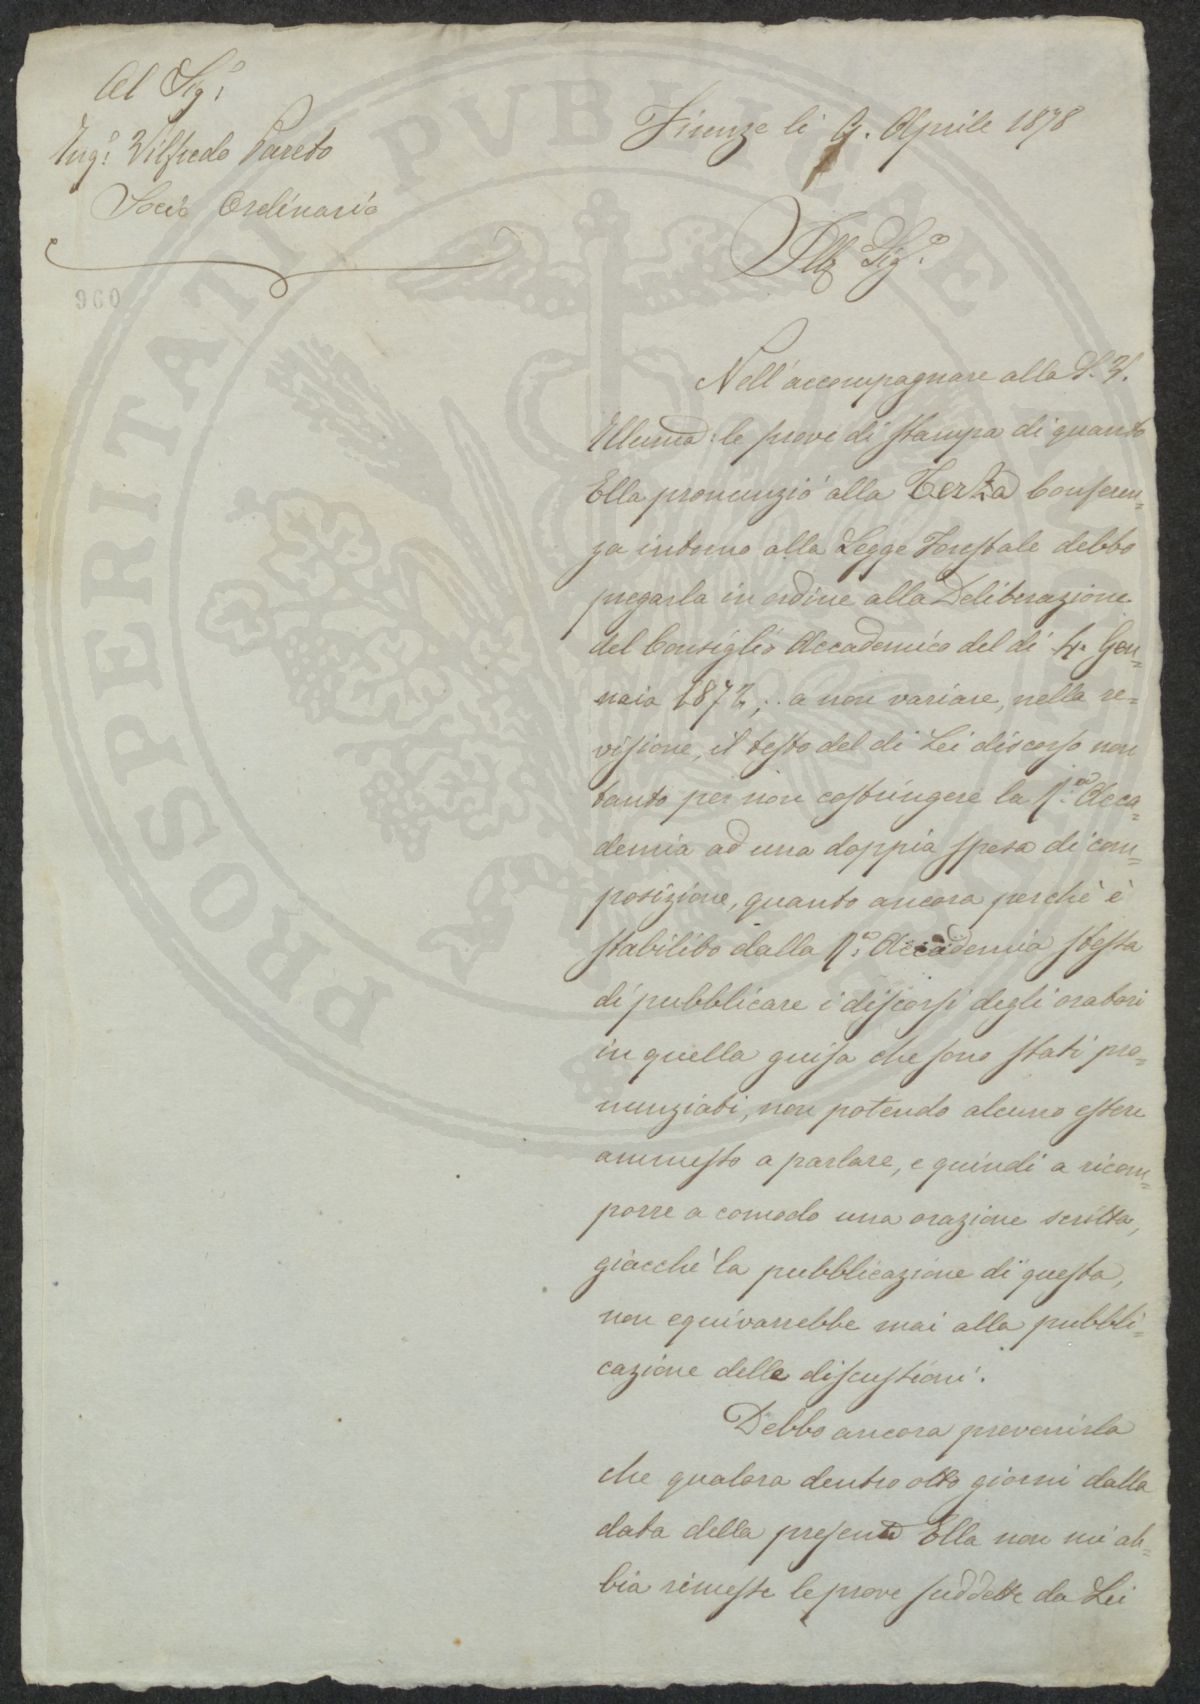 Al Sig.r
Ing.r Vilfredo Pareto
Socio Ordinario
960
Firenze li 9. Aprile 1878
Ill.° Sig.r
Nell'accompagnare alla S. V.
Illuma: le prove di stampa di quanto
Ella pronunziò alla Terza Conferen=
za intorno alla Legge Forestale debbo
pregarla in ordine alla Deliberazione
del Consiglio Accademico del di 4. Gen=
naio 1872; a non variare, nella re=
visione, il testo del di Lei discorso non
tanto per non costringere la R.a Acca=
demia ad una doppia spesa di com=
posizione, quanto ancora perchè è
stabilito dalla R.a Accademia stessa
di pubblicare i discorsi degli oratori
in quella guisa che sono stati pro=
nunziati, non potendo alcuno essere
ammesso a parlare, e quindi a ricom=
porre a comodo una orazione scritta,
giacchè la pubblicazione di questa,
non equivarrebbe mai alla pubbli=
cazione delle discussioni.
Debbo ancora prevenirla
che qualora dentro otto giorni dalla
data della presente Ella non mi ab=
bia rimesse le prove suddette da Lei
PROSPERITATI PVBLICAE